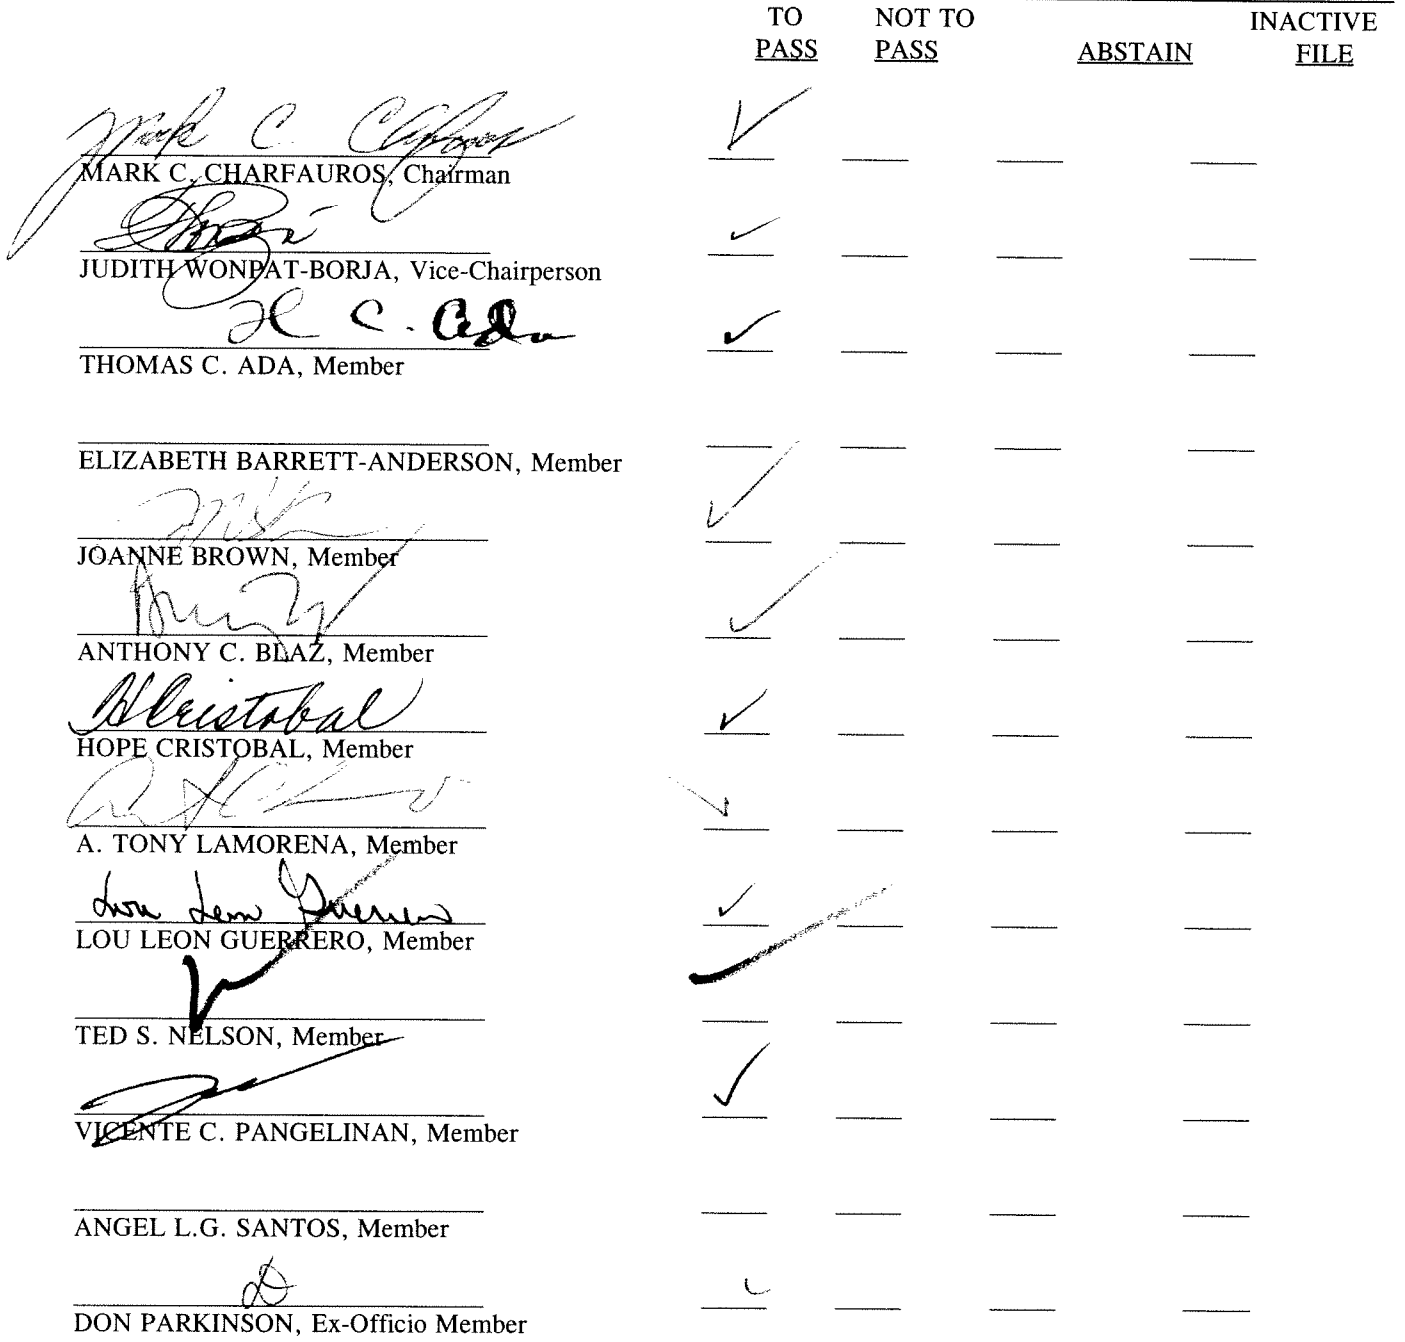 TO NOT TO INACTIVE
PASS PASS ABSTAIN FILE
Mark C. Charfauros ✓
MARK C. CHARFAUROS, Chairman
✓
JUDITH WONPAT-BORJA, Vice-Chairperson
C. Ada ✓
THOMAS C. ADA, Member
ELIZABETH BARRETT-ANDERSON, Member
✓
JOANNE BROWN, Member
✓
ANTHONY C. BLAZ, Member
HCristobal ✓
HOPE CRISTOBAL, Member
✓
A. TONY LAMORENA, Member
Lou Leon Guerrero ✓
LOU LEON GUERRERO, Member
✓
TED S. NELSON, Member
✓
VICENTE C. PANGELINAN, Member
ANGEL L.G. SANTOS, Member
✓
DON PARKINSON, Ex-Officio Member